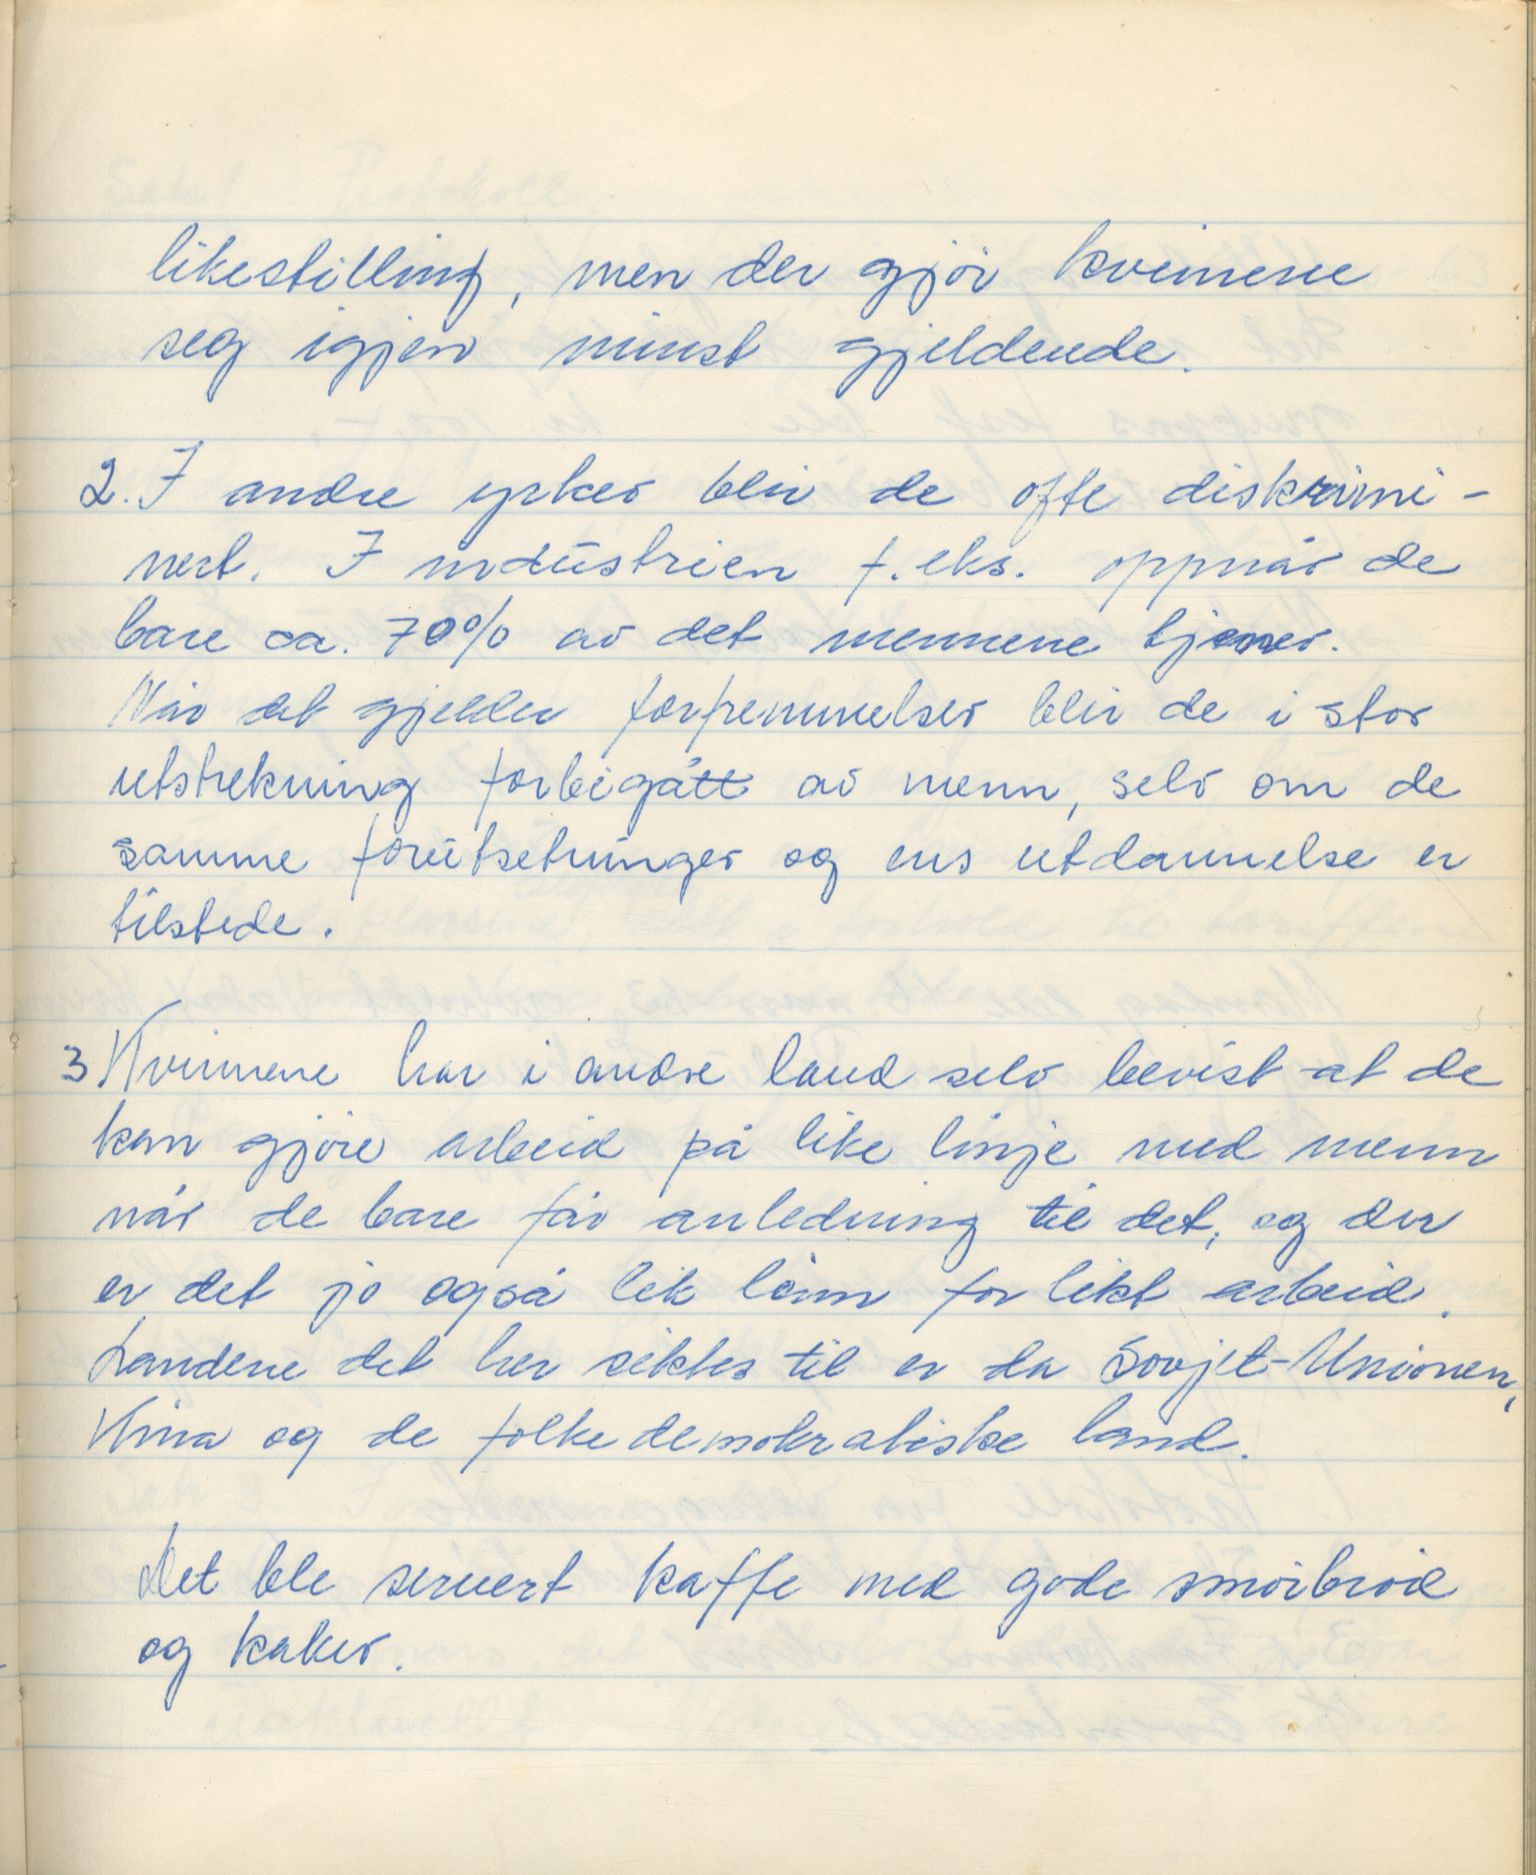 likestilling, men der gjör kvinnene
seg igjen minst gjeldende.
2. I andre yrker blir de ofte diskrimi-
nert. I industrien f.eks. oppnår de
bare ca. 70% av det mennene tjener.
Når det gjelder forfremmelser blir de i stor
utstrekning forbigått av menn, selv om de
samme forutsetninger og ens utdannelse er
tilstede.
3 Kvinnene har i andre land selv bevist at de
kan gjöre arbeid på like linje med menn
når de bare får anledning til det, og der
er det jo også lik lönn for likt arbeid.
Landene det her siktes til er da Sovjet-Unionen,
Kina og de folkedemokratiske land.
Det ble servert kaffe med gode smörbröd
og kaker.